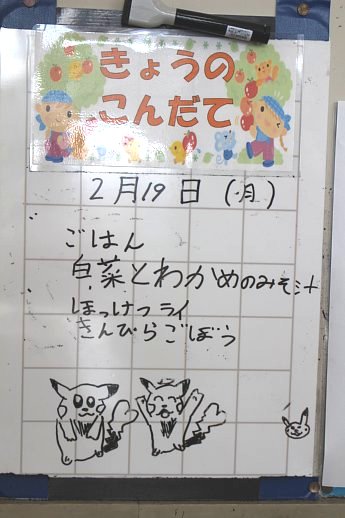 きょうの
こんだて
2月19日(月)
ごはん
白菜とわかめのみそ汁
ほっけフライ
きんぴらごぼう